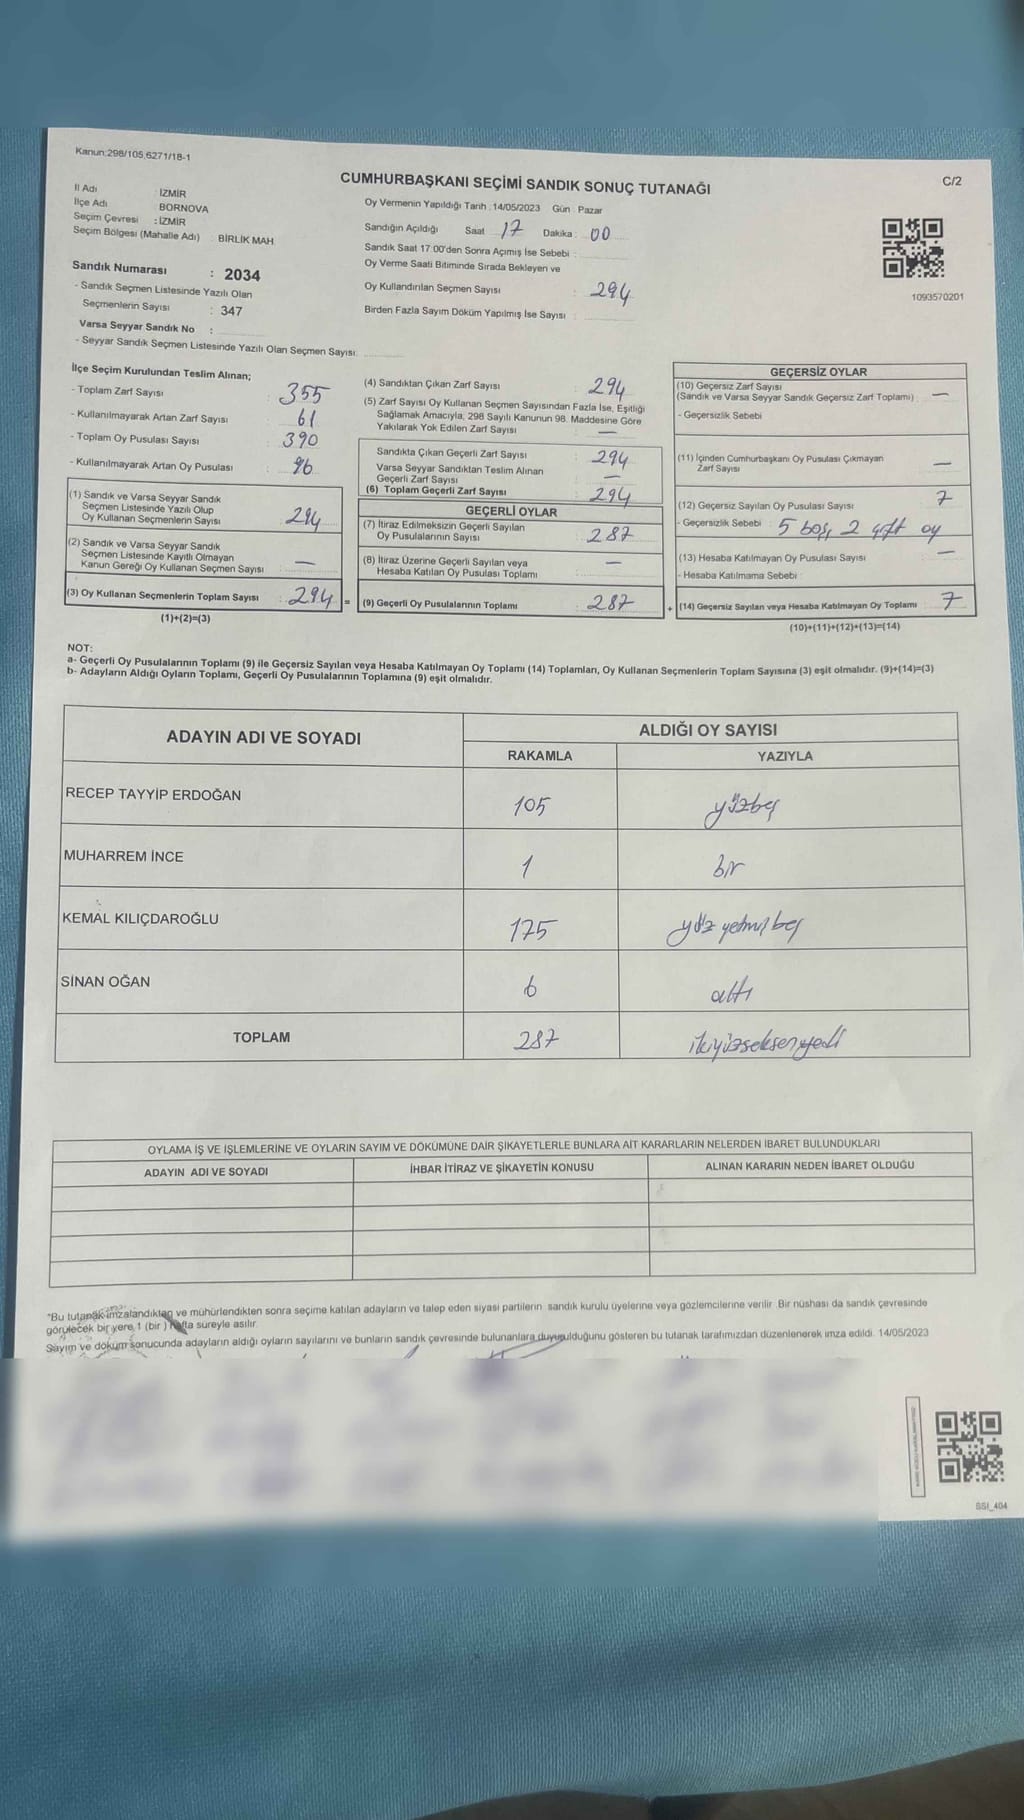 Kanun:298/105,6271/18-1
CUMHURBAŞKANI SEÇİMİ SANDIK SONUÇ TUTANAĞI
C/2
İl Adı : İZMİR
İlçe Adı : BORNOVA
Seçim Çevresi : İZMİR
Seçim Bölgesi (Mahalle Adı) : BİRLİK MAH.
Sandık Numarası : 2034
- Sandık Seçmen Listesinde Yazılı Olan
Seçmenlerin Sayısı : 347
Varsa Seyyar Sandık No :
- Seyyar Sandık Seçmen Listesinde Yazılı Olan Seçmen Sayısı:
Oy Vermenin Yapıldığı Tarih : 14/05/2023 Gün : Pazar
Sandığın Açıldığı Saat 17 Dakika : 00
Sandık Saat 17:00'den Sonra Açımış İse Sebebi :
Oy Verme Saati Bitiminde Sırada Bekleyen ve
Oy Kullandırılan Seçmen Sayısı : 294
Birden Fazla Sayım Döküm Yapılmış İse Sayısı :
1093570201
İlçe Seçim Kurulundan Teslim Alınan;
- Toplam Zarf Sayısı : 355
- Kullanılmayarak Artan Zarf Sayısı : 61
- Toplam Oy Pusulası Sayısı : 390
- Kullanılmayarak Artan Oy Pusulası : 96
(1) Sandık ve Varsa Seyyar Sandık
Seçmen Listesinde Yazılı Olup
Oy Kullanan Seçmenlerin Sayısı : 294
(2) Sandık ve Varsa Seyyar Sandık
Seçmen Listesinde Kayıtlı Olmayan
Kanun Gereği Oy Kullanan Seçmen Sayısı : —
(3) Oy Kullanan Seçmenlerin Toplam Sayısı : 294 =
(1)+(2)=(3)
(4) Sandıktan Çıkan Zarf Sayısı : 294
(5) Zarf Sayısı Oy Kullanan Seçmen Sayısından Fazla İse, Eşitliği
Sağlamak Amacıyla, 298 Sayılı Kanunun 98. Maddesine Göre
Yakılarak Yok Edilen Zarf Sayısı : —
Sandıkta Çıkan Geçerli Zarf Sayısı : 294
Varsa Seyyar Sandıktan Teslim Alınan
Geçerli Zarf Sayısı : —
(6) Toplam Geçerli Zarf Sayısı : 294
GEÇERLİ OYLAR
(7) İtiraz Edilmeksizin Geçerli Sayılan
Oy Pusulalarının Sayısı : 287
(8) İtiraz Üzerine Geçerli Sayılan veya
Hesaba Katılan Oy Pusulası Toplamı : —
(9) Geçerli Oy Pusulalarının Toplamı : 287 +
GEÇERSİZ OYLAR
(10) Geçersiz Zarf Sayısı
(Sandık ve Varsa Seyyar Sandık Geçersiz Zarf Toplamı) : —
- Geçersizlik Sebebi :
(11) İçinden Cumhurbaşkanı Oy Pusulası Çıkmayan
Zarf Sayısı : —
(12) Geçersiz Sayılan Oy Pusulası Sayısı : 7
- Geçersizlik Sebebi : 5 boş, 2 çift oy
(13) Hesaba Katılmayan Oy Pusulası Sayısı : —
- Hesaba Katılmama Sebebi :
(14) Geçersiz Sayılan veya Hesaba Katılmayan Oy Toplamı : 7
(10)+(11)+(12)+(13)=(14)
NOT:
a- Geçerli Oy Pusulalarının Toplamı (9) ile Geçersiz Sayılan veya Hesaba Katılmayan Oy Toplamı (14) Toplamları, Oy Kullanan Seçmenlerin Toplam Sayısına (3) eşit olmalıdır. (9)+(14)=(3)
b- Adayların Aldığı Oyların Toplamı, Geçerli Oy Pusulalarının Toplamına (9) eşit olmalıdır.
ADAYIN ADI VE SOYADI
ALDIĞI OY SAYISI
RAKAMLA YAZIYLA
RECEP TAYYİP ERDOĞAN 105 yüzbeş
MUHARREM İNCE 1 bir
KEMAL KILIÇDAROĞLU 175 yüz yetmiş beş
SİNAN OĞAN 6 altı
TOPLAM 287 ikiyüzseksenyedi
OYLAMA İŞ VE İŞLEMLERİNE VE OYLARIN SAYIM VE DÖKÜMÜNE DAİR ŞİKAYETLERLE BUNLARA AİT KARARLARIN NELERDEN İBARET BULUNDUKLARI
ADAYIN ADI VE SOYADI İHBAR İTİRAZ VE ŞİKAYETİN KONUSU ALINAN KARARIN NEDEN İBARET OLDUĞU
*Bu tutanak imzalandıktan ve mühürlendikten sonra seçime katılan adayların ve talep eden siyasi partilerin sandık kurulu üyelerine veya gözlemcilerine verilir. Bir nüshası da sandık çevresinde
görülecek bir yere 1 (bir ) hafta süreyle asılır.
Sayım ve döküm sonucunda adayların aldığı oyların sayılarını ve bunların sandık çevresinde bulunanlara duyurulduğunu gösteren bu tutanak tarafımızdan düzenlenerek imza edildi. 14/05/2023
SSI_404